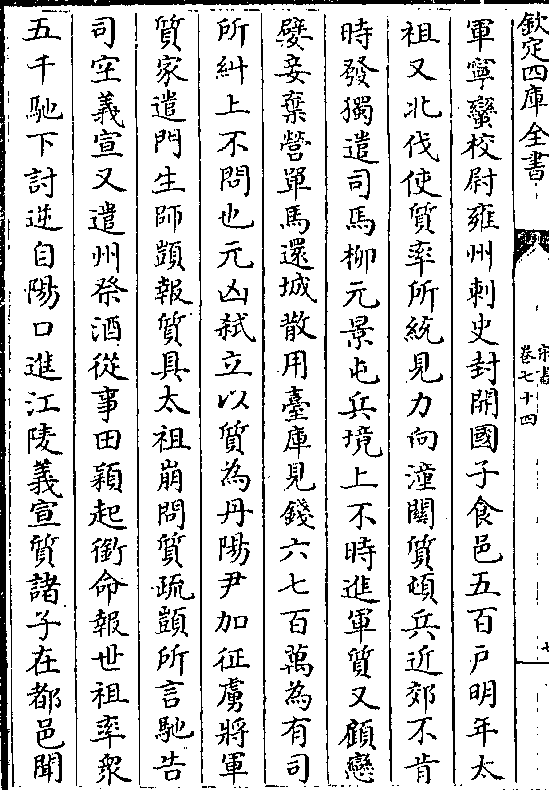 欽定四庫全書
宋書
卷七十四
七
軍寧蠻校尉雍州刺史封開國子食邑五百戶明年太
祖又北伐使質率所統見力向潼關質頓兵近郊不肯
時發獨遣司馬柳元景屯兵境上不時進軍質又顧戀
嬖妾棄營單馬還城散用臺庫見錢六七百萬為有司
所糾上不問也元凶弑立以質為丹陽尹加征虜將軍
質家遣門生師顗報質具太祖崩問質疏顗所言馳告
司空義宣又遣州祭酒從事田穎起銜命報世祖率衆
五千馳下討逆自陽口進江陵義宣質諸子在都邑聞